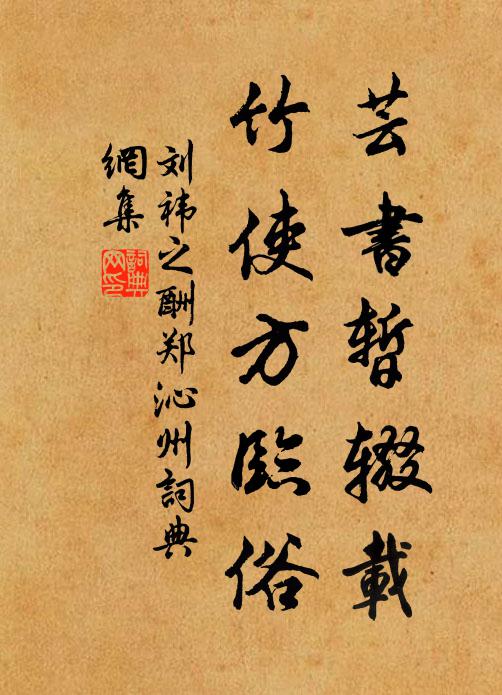 芸書暫辍載
竹使方臨俗
刘祎之酬郑沁州詞典
網集
詞典
网印